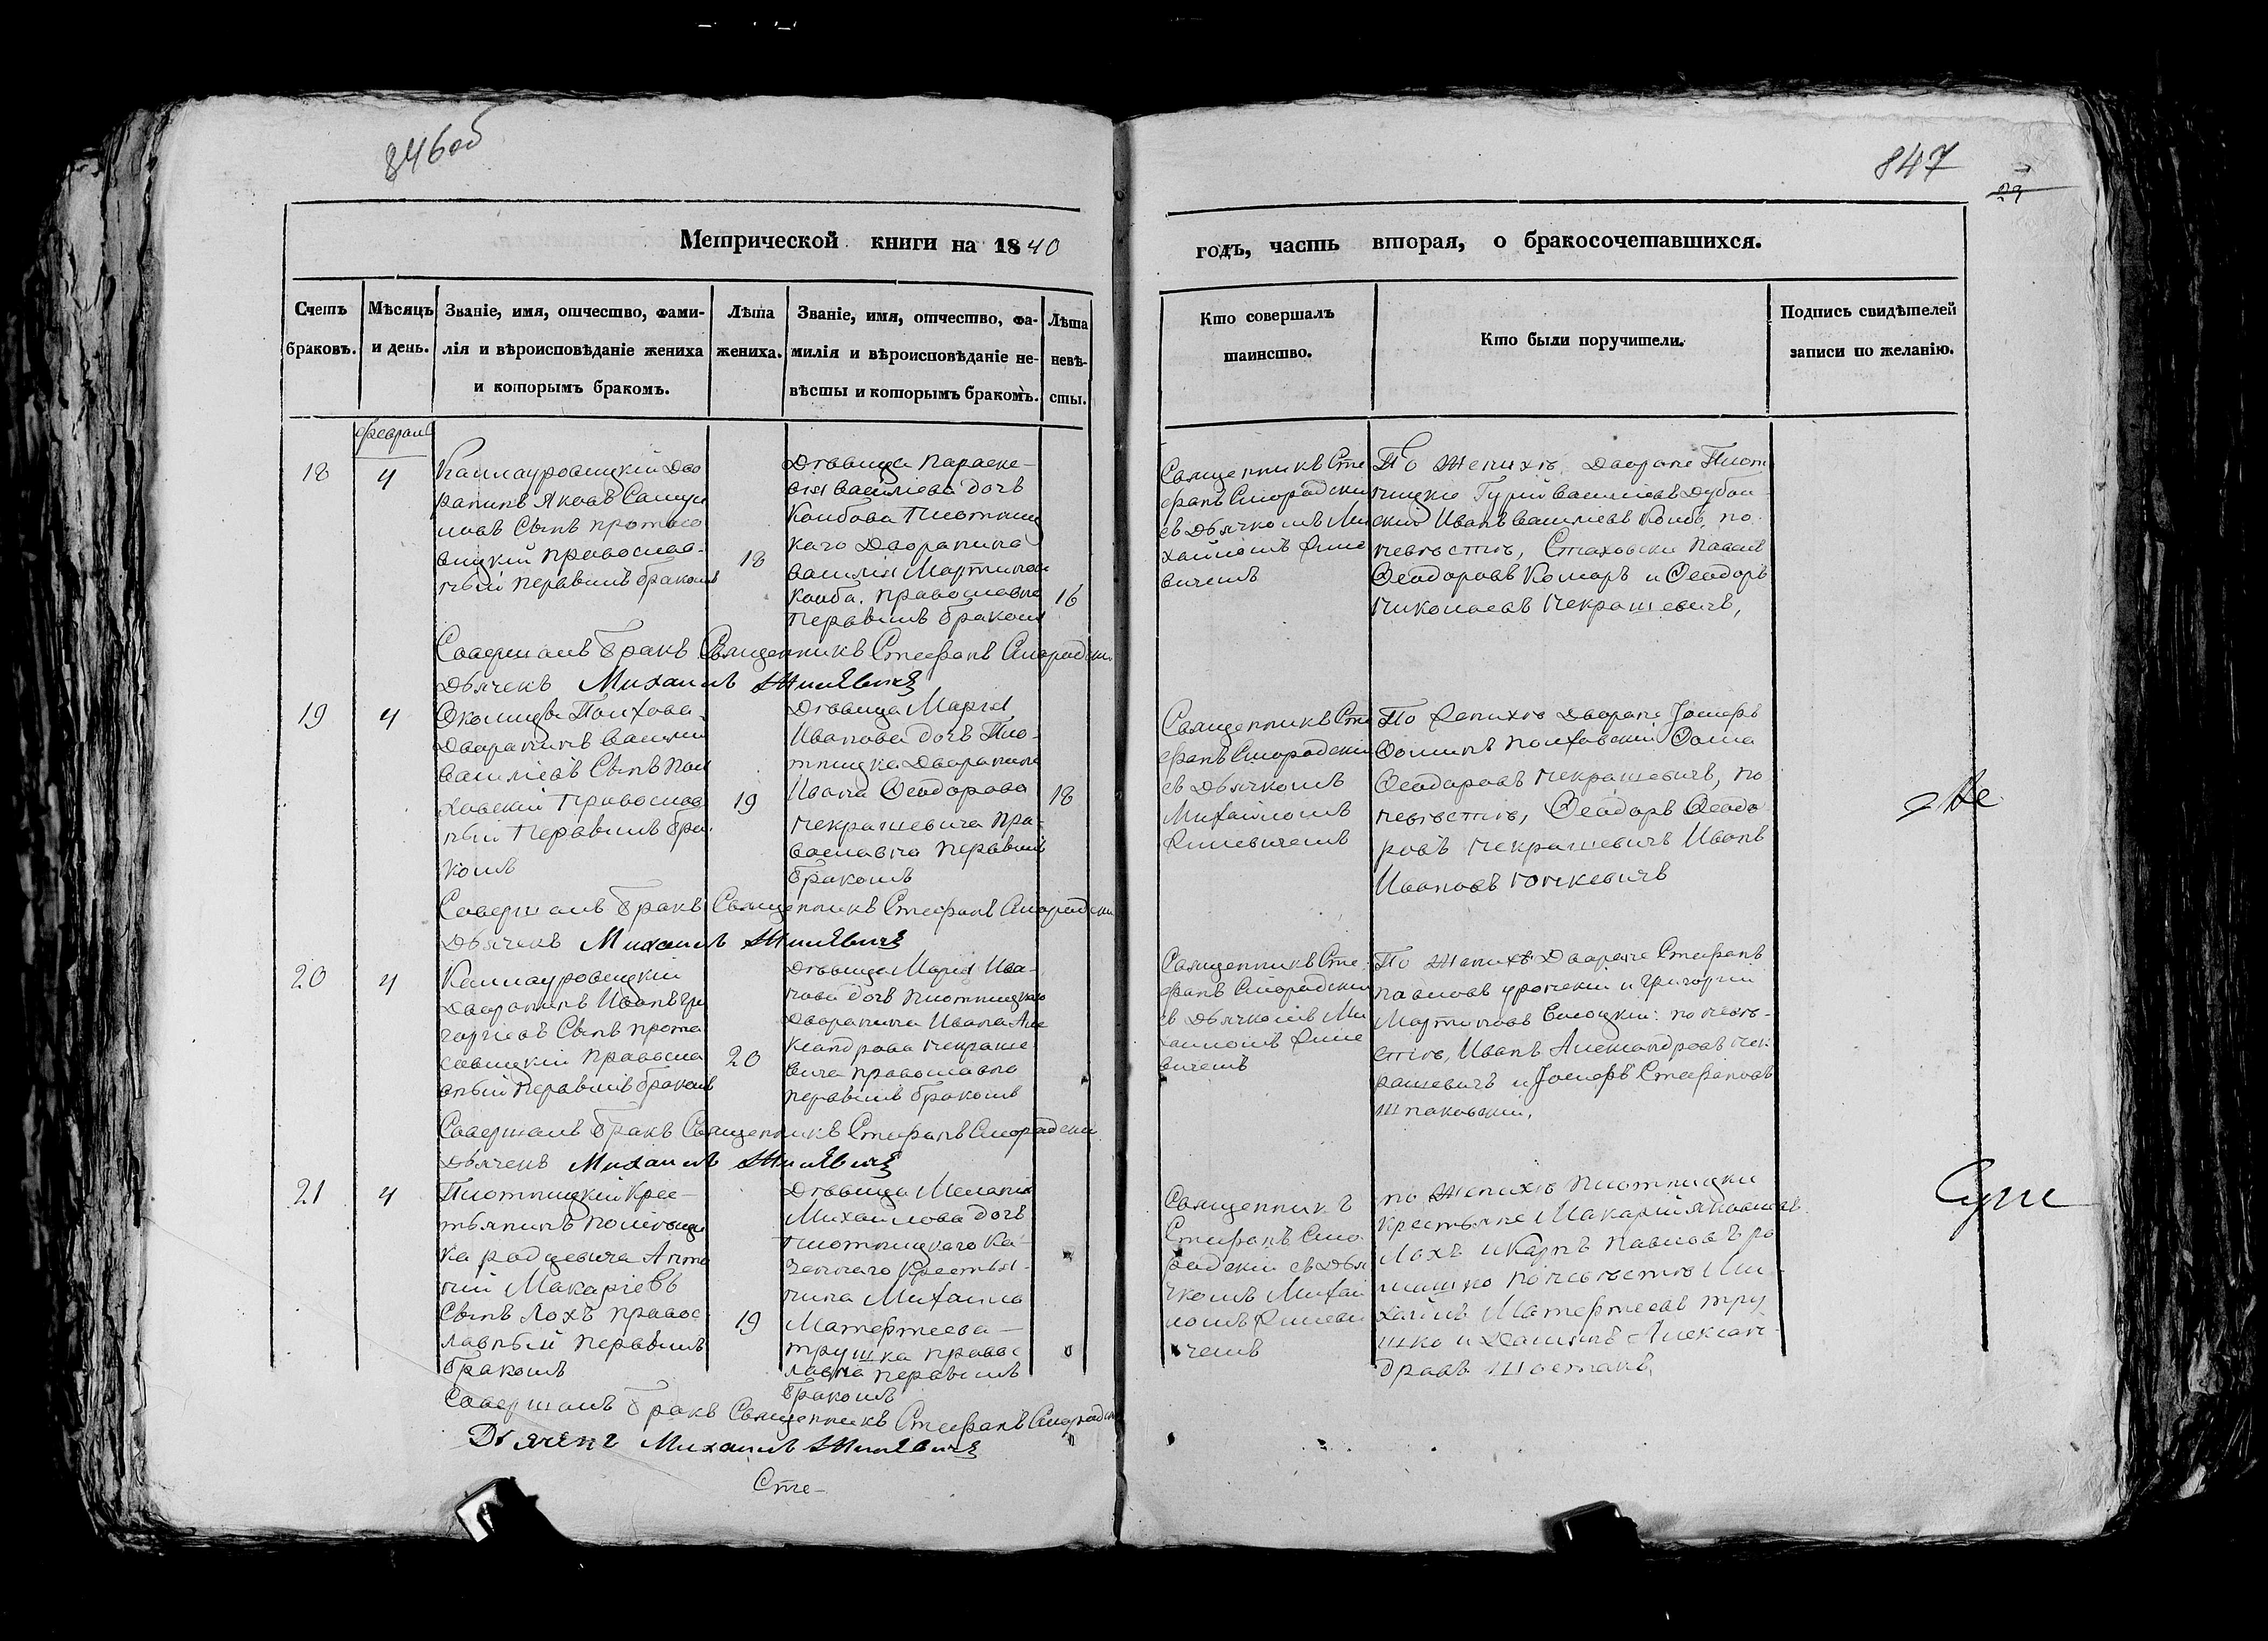 846об
847
29
Метрической книги на 1840
годъ, часть вторая, о бракосочетавшихся.
Счетъ браковъ.
Мѣсяцъ и день.
Званіе, имя, отчество, фами-
лія и вѣроисповѣданіе жениха
и которымъ бракомъ.
Лѣта
жениха.
Званіе, имя, отчество, фа-
милія и вѣроисповѣданіе не-
вѣсты и которымъ бракомъ.
Лѣта
невѣ-
сты.
Кто совершалъ
таинство.
Кто были поручители.
Подпись свидѣтелей
записи по желанію.
февраль
18
4
Каллауровицкій Дво
ранинъ Яковъ Самуи
ловъ Сынъ протасо
вицкій православ-
ный первымъ бракомъ
18
Дѣвица Параске-
вія Василіева дочь
Колбова Плотниц
каго Дворанина
Василія Мартинова
Колба. православна
первымъ бракомъ
16
Священникъ Сте
фанъ Смородскій
съ Дьячкомъ Ми
хайломъ Жиле
вичемъ
По Женихѣ Дворане Плот
ницкіе Гурій Василіевъ Дубои
скій Иванъ Василіевъ Колбъ, по
невѣстѣ, Стаховски Павелъ
Ѳеодоровъ Комаръ и Ѳеодоръ
Николаевъ Некрашевичъ,
Совершалъ бракъ Священникъ Стефанъ Смородскій
Дьячекъ Михаилъ Жилевичъ
19
4
Околицы Полхова
Дворанинъ Василій
Василіевъ Сынъ Пол
ховскій Православ
ный Первымъ бра
комъ
19
Дѣвица Марія
Иванова дочь Пло-
тницка Дворанина
Ивана Ѳеодорова
Некрашевича Пра-
вославна первымъ
бракомъ
18
Священникъ Сте
фанъ Смородскій
съ Дьячкомъ
Михайломъ
Жилевичемъ
По Женихѣ Дворане Іосифъ
Ѳоминъ Полховскій Ѳома
Ѳеодоровъ Некрашевичъ, по
невѣстѣ, Ѳеодоръ Ѳеодо
ровъ Некрашевичъ Иванъ
Ивановъ
Совершалъ бракъ Священникъ Стефанъ Смородскій
Дьячекъ Михаилъ Жилевичъ
20
4
Каллауровицкій
Дворанинъ Иванъ Гри
горіевъ Сынъ прота
совицкій Правосла
вный первымъ бракомъ
20
Дѣвица Марія Ива-
нова дочь Плотницкаго
Дворанина Ивана Але
ксандрова Некраше
вича православна
первымъ бракомъ
Священникъ Сте
фанъ Смородскій
съ Дьячкомъ Ми
хаиломъ Жиле
вичемъ
По Женихѣ Дворане Стефанъ
Павловъ и Григорій
Мартиновъ по невѣ-
стѣ, Иванъ Александровъ Нек
рашевичъ и Іосифъ Стефановъ
Шпаковскій.
Совершалъ бракъ Священникъ Стефанъ Смородскій
Дьячекъ Михаилъ Жилевичъ
21
4
Плотницкій Крес-
тьянинъ помѣщи
ка родцевича Анто
ній Макаріевъ
Сынъ Лохъ правос
лавный первымъ
бракомъ
19
Дѣвица Меланія
Михаилова дочь
Плотницкаго Ка-
зеннаго крестья-
нина Михаила
Матфеева
трушка правос
лавна первымъ
бракомъ
Священникъ
Стефанъ Смо
родскій съ Дья
чкомъ Михай
ломъ Жилеви
чемъ
по Женихѣ Плотницки
Крестьяне Макарій Яковлевъ
Лохъ и Карпъ Павловъ ро
машко по невѣстѣ Ми
хаилъ Матфеевъ тру
шко и Алексан-
дровъ Шостакъ,
Совершалъ бракъ Священникъ Стефанъ Смородскій
Дьячекъ Михаилъ Жилевичъ
Сте-